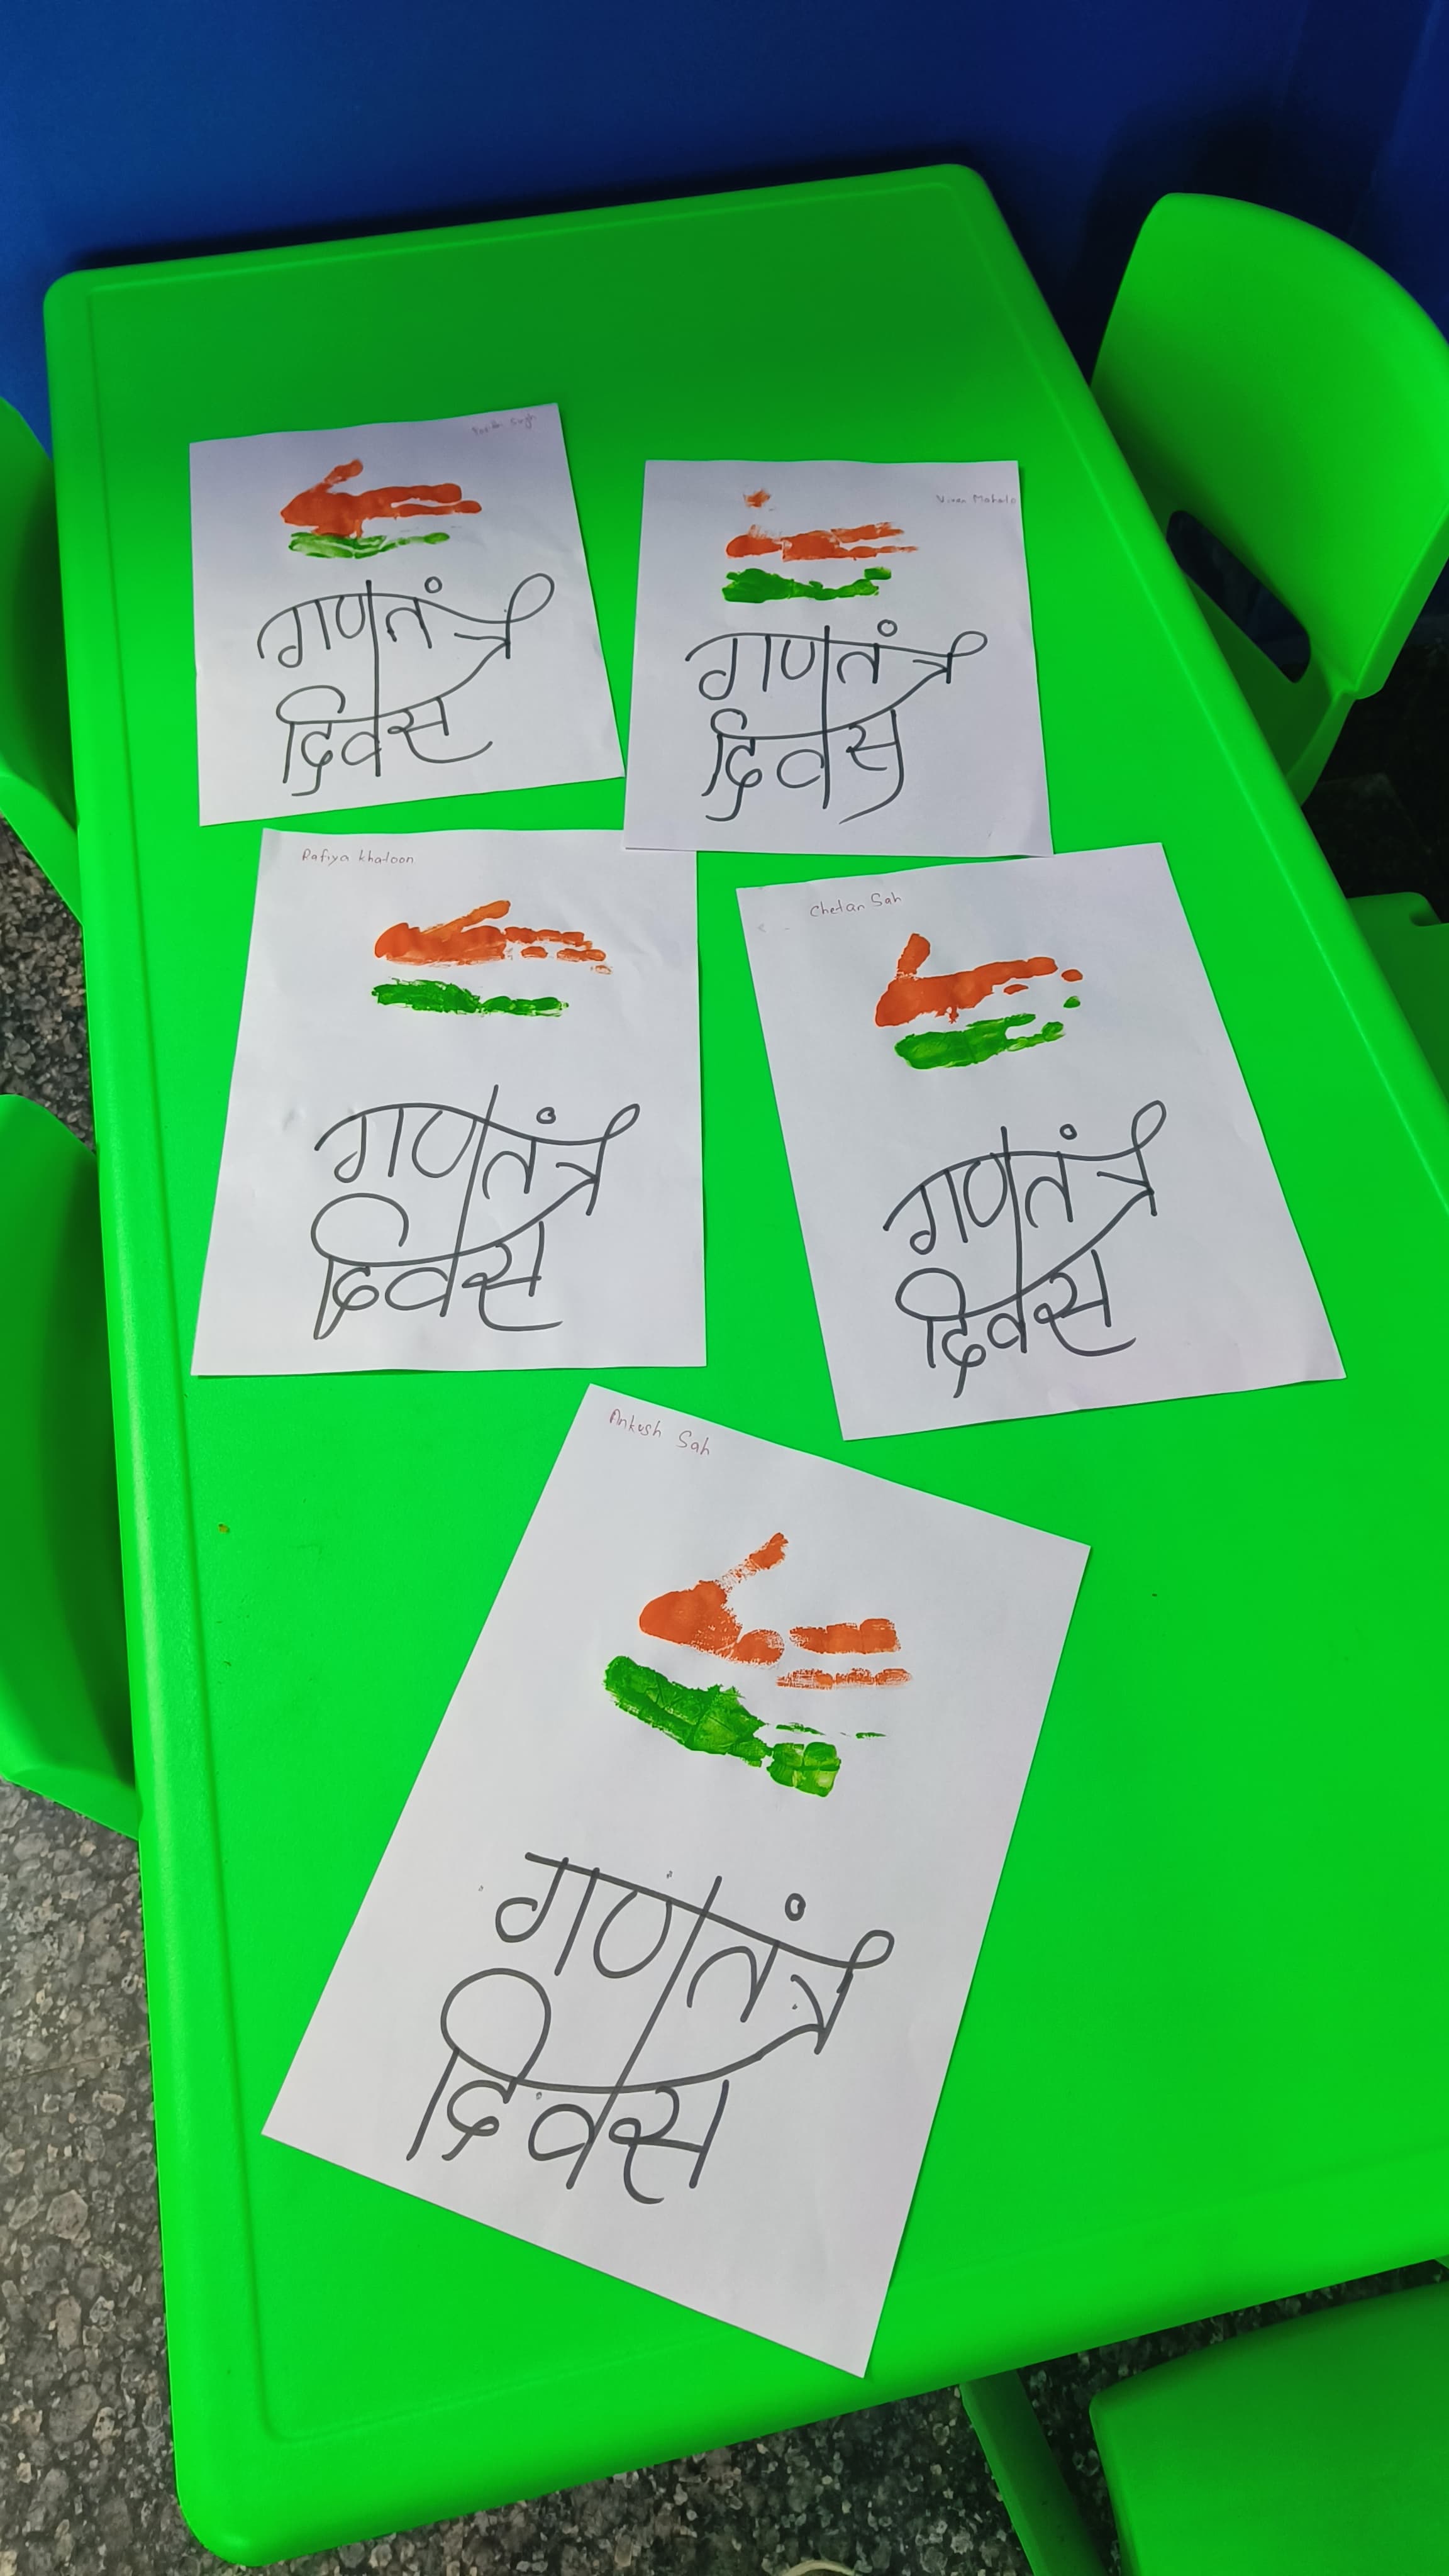 Singh
गणतंत्र
दिवस
Viren Mahato
गणतंत्र
दिवस
Rafiya Khatoon
गणतंत्र
दिवस
Chetan Sah
गणतंत्र
दिवस
Ankush Sah
गणतंत्र
दिवस